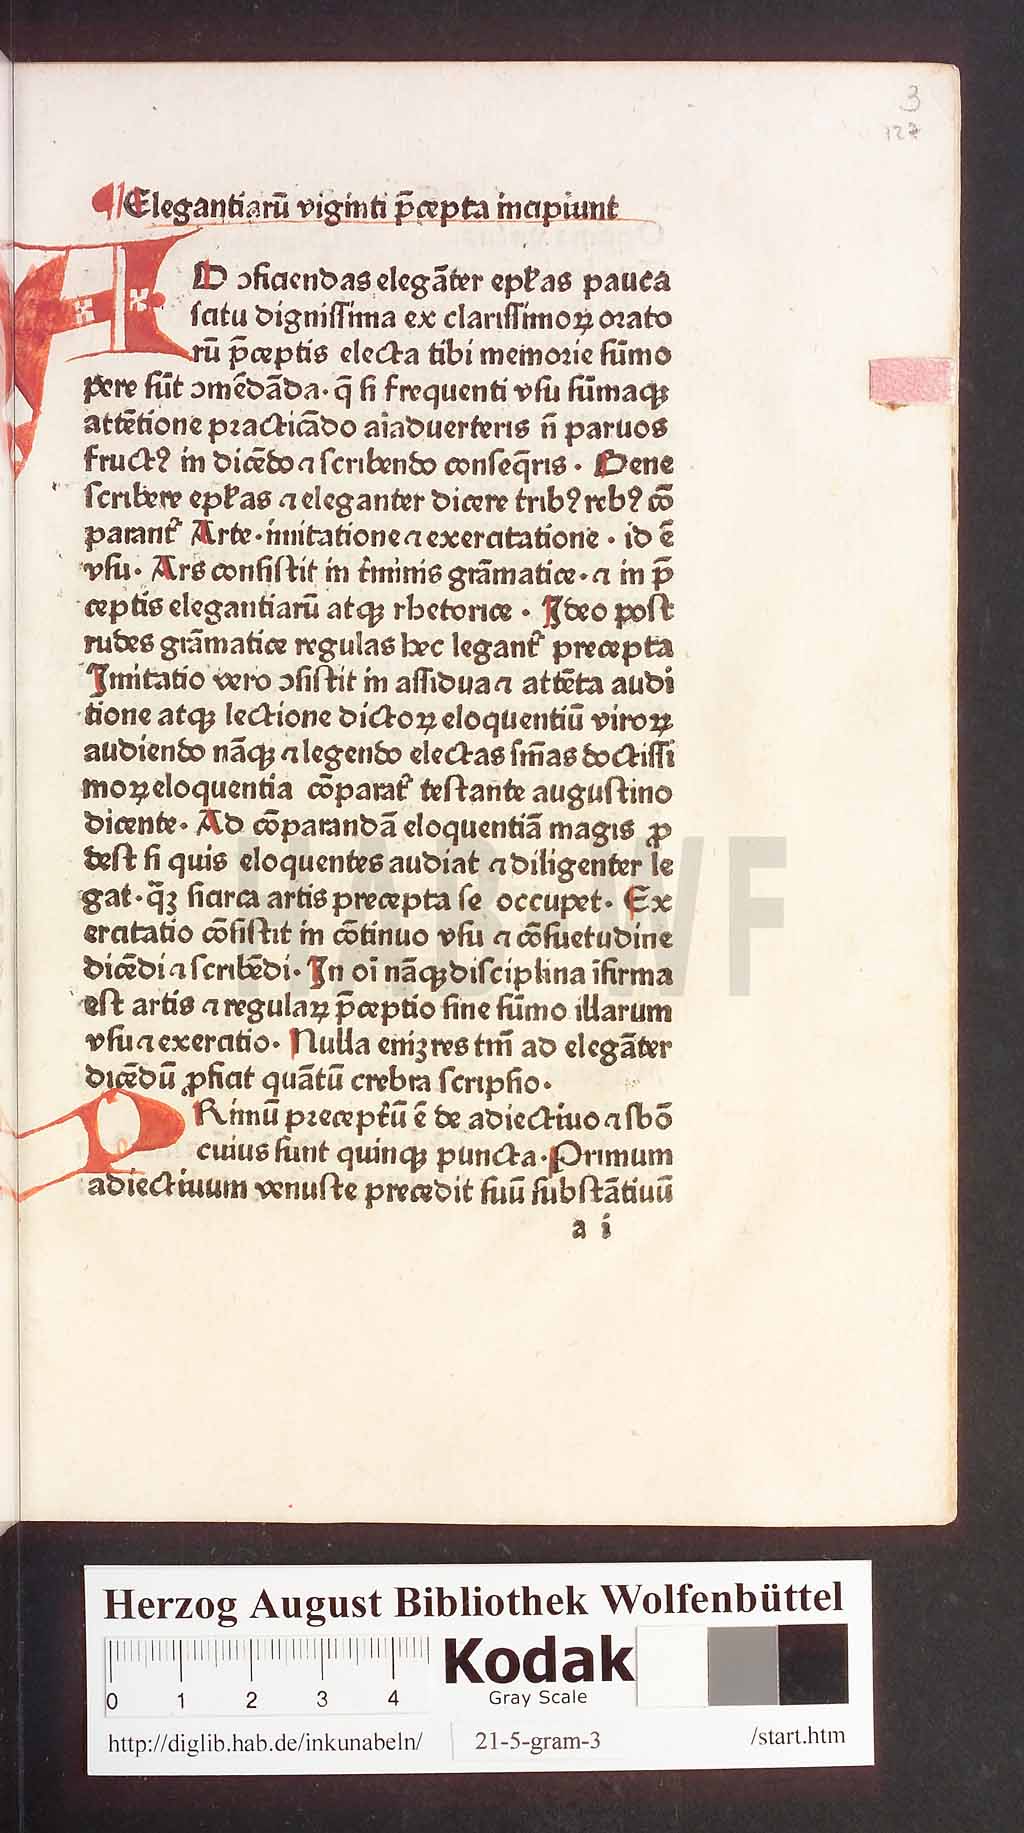 3
127
¶Elegantiarū viginti p̄cepta incipiunt
AD ꝯficiendas elegāter epl̄as pauca
scitu dignissima ex clarissimoꝝ orato
rū p̄ceptis electa tibi memorie sūmo
pere sūt ꝯmēdāda· q̄ si frequenti vsu sūmaqꝫ
attētione practicādo aīaduerteris n̄ paruos
fructꝰ in dicēdo ⁊ scribendo conseq̄ris · Bene
scribere epl̄as ⁊ eleganter dicere tribꝰ rebꝰ cō
parant᷑ Arte · imitatione ⁊ exercitatione · id ē
vsu · Ars consistit in t̄minis grāmatice · ⁊ in p̄
ceptis elegantiarū atqꝫ rhetorice · Ideo post
rudes grāmatice regulas hec legant᷑ precepta
Imitatio vero ꝯsistit in assidua ⁊ attēta audi
tione atqꝫ lectione dictoꝝ eloquentiū viroꝝ
audiendo nāqꝫ ⁊ legendo electas sm̄as doctissi
moꝝ eloquentia cōparat᷑ testante augustino
dicente · Ad cōparandā eloquentiā magis ꝓ
dest si quis eloquentes audiat ⁊ diligenter le
gat · q̄ꝫ si circa artis precepta se occupet · Ex
ercitatio cōsistit in cōtinuo vsu ⁊ cōsuetudine
dicēdi ⁊ scribēdi · In oī nāqꝫ disciplina īfirma
est artis ⁊ regulaꝝ p̄ceptio sine sūmo illarum
vsu ⁊ exercitio · Nulla eniꝫ res tm̄ ad elegāter
dicēdū ꝓficit quātū crebra scriptio ·
PRimū preceptū ē de adiectiuo ⁊ sbō
cuius sunt quinqꝫ puncta · Primum
adiectiuum venuste precedit suū substātiuū
a i
HAB WF
Herzog August Bibliothek Wolfenbüttel
0 1 2 3 4
Kodak
Gray Scale
http://diglib.hab.de/inkunabeln/ 21-5-gram-3 /start.htm